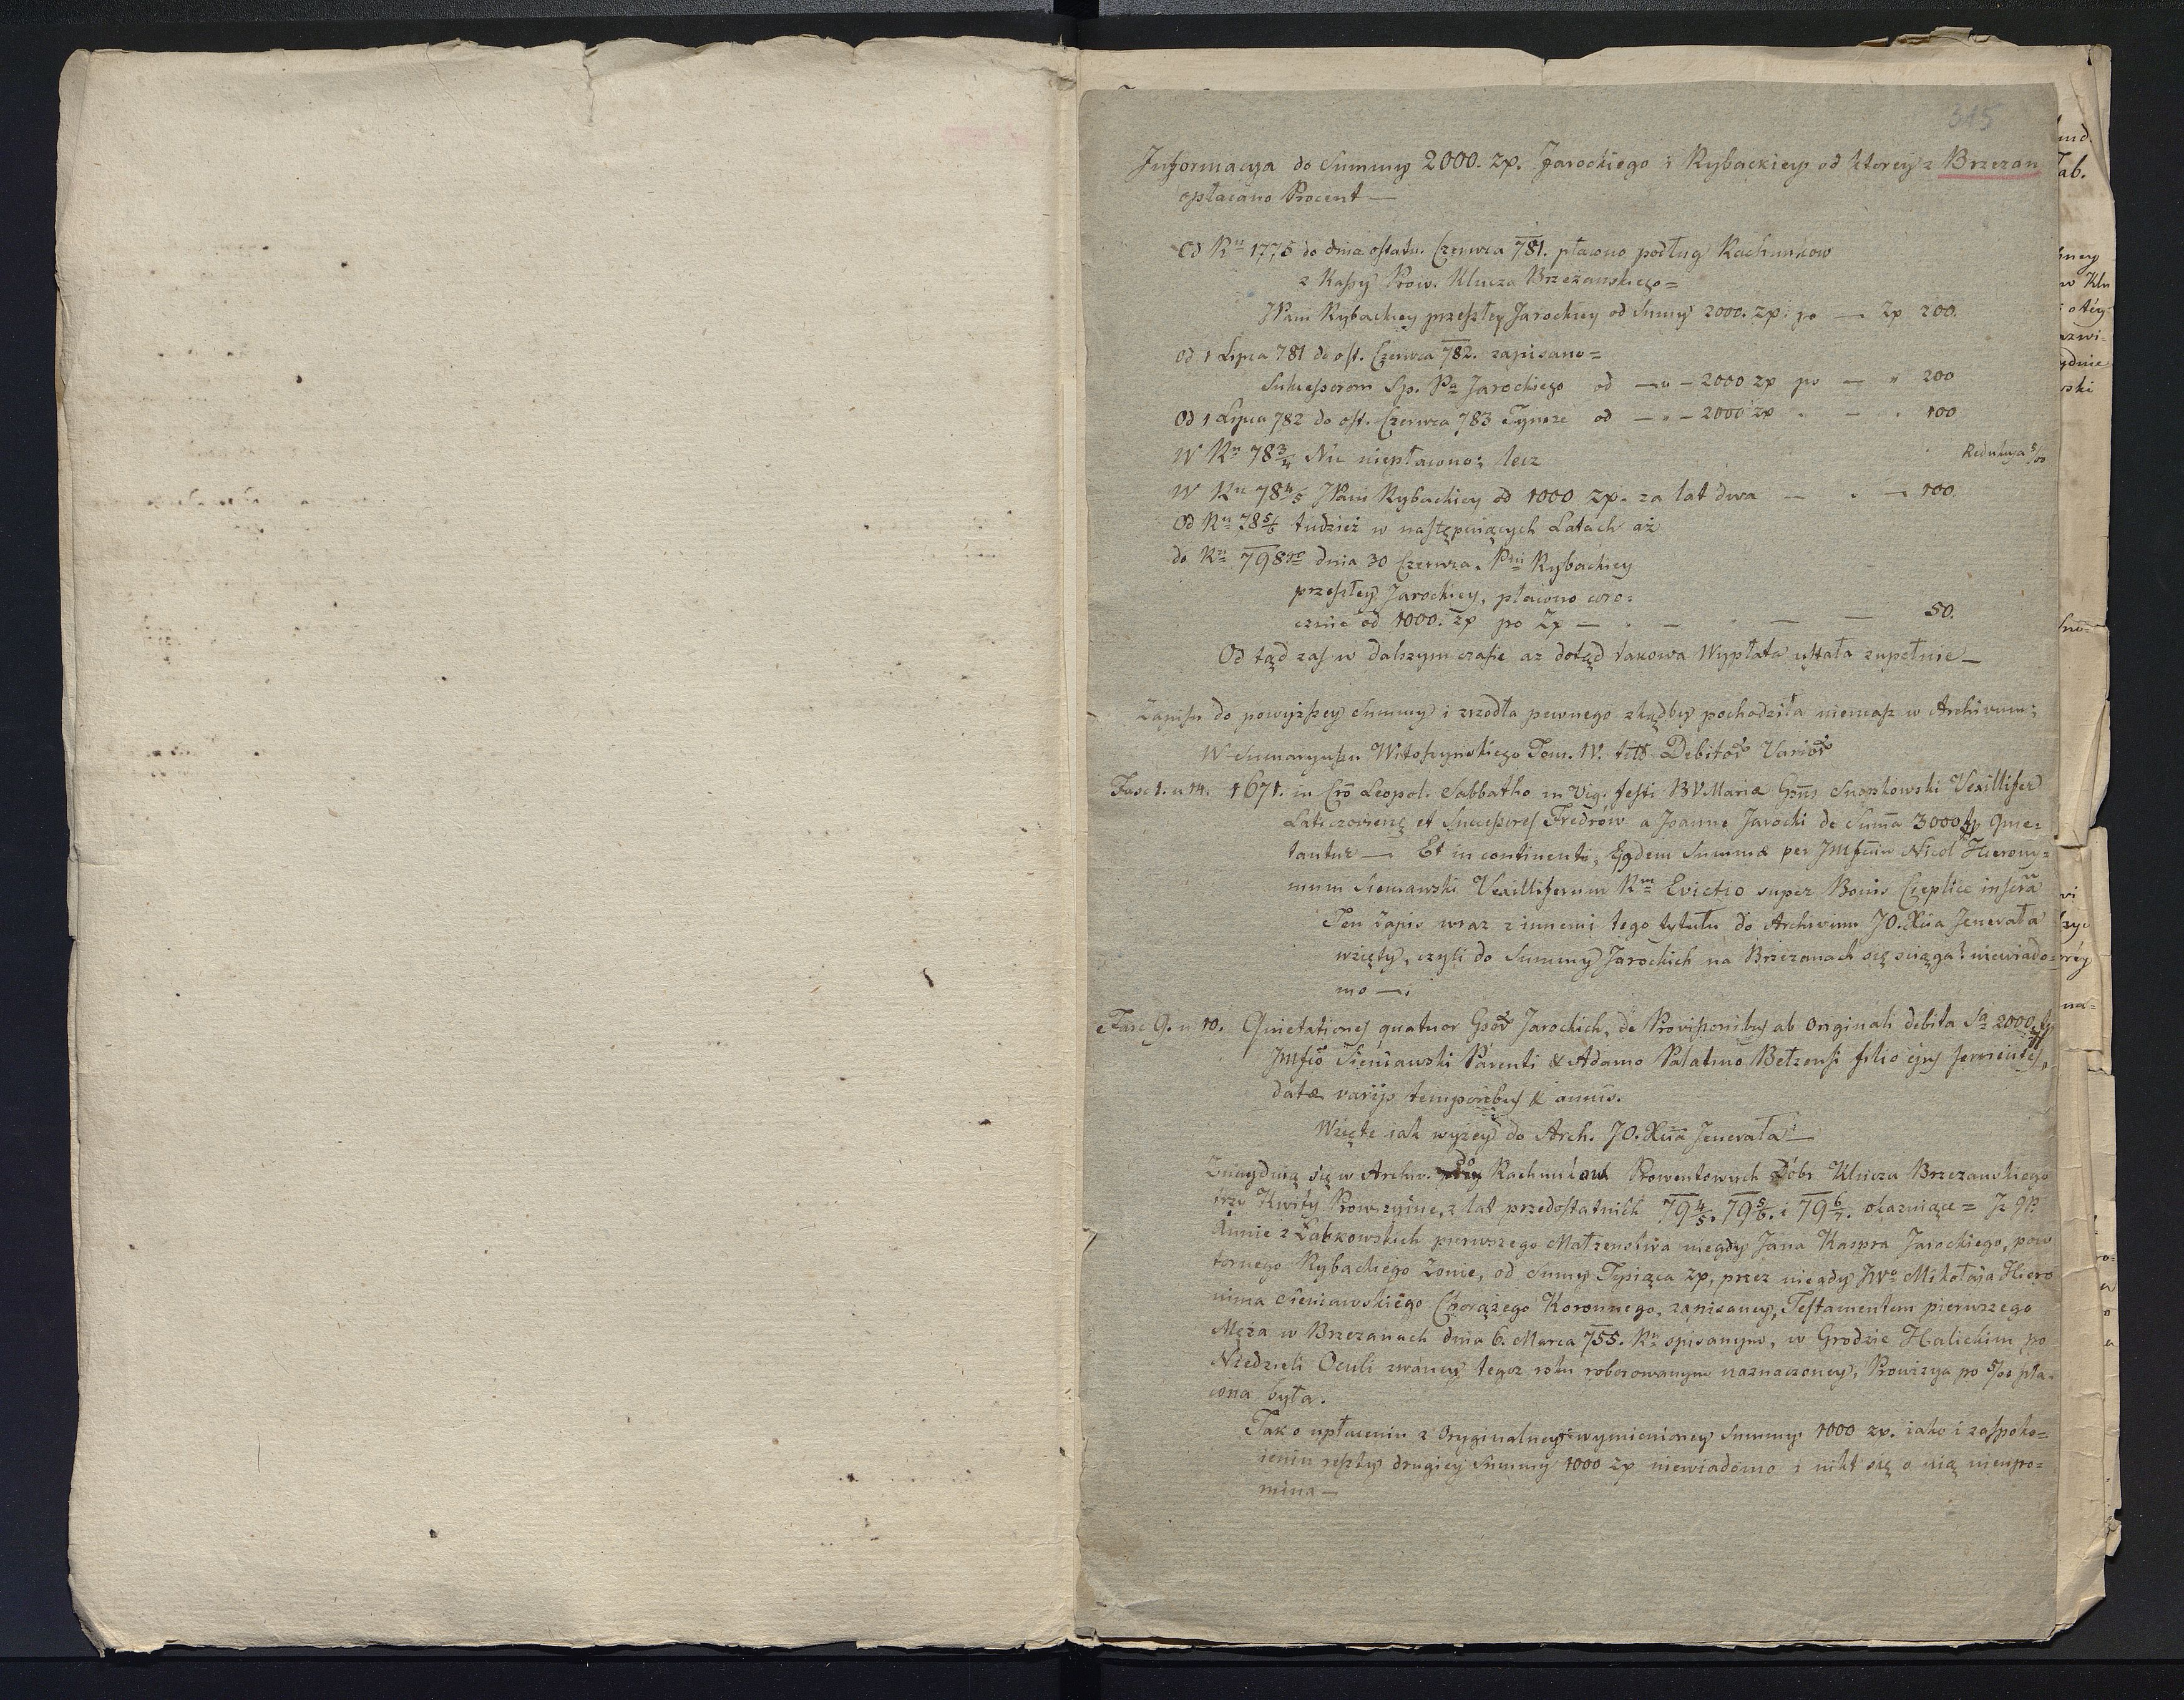 315
Informacya do Summy 2000. zp. Jarockiego i Rybackiey od ktorey z Brzezan
opłacano Procent —
Od Ru 1775 do dnia ostatn. Czerwca 781. płacono podług Rachunkow
z Kassy Prow. Klucza Brzeżanskiego =
JPani Rybackiey przeszłey Jarockiey od Summy 2000. zp. po — Zp 200.
Od 1 Lipca 781 do ost. Czerwca 782. zapisano =
Sukcessorom Sp. Pa Jarockiego od — " — 2000 zp po — " 200
Od 1 Lipca 782 do ost. Czerwca 783 Tymże od — " — 2000 zp . — . 100
Redukcya 5/00
W Ru 783/4 Nic niepłacono; lecz
W Ru 784/5 JPani Rybackiey od 1000 zp. za lat dwa — . — 100.
Od Ru 785/6 tudzież w następuiących Latach aż
do Ru 798go dnia 30 Czerwca. Pni Rybackiey
przeszłey Jarockiey, płacono coro=
cznie od 1000. zp po Zp — . — . — — 50.
Od tąd zas w dalszym czasie az dotąd takowa Wypłata ustała zupełnie —
Zapisu do powyższey Summy i zrzodła pewnego zkądby pochodziła niemasz w Archivum;
W Sumaryuszu Witoszynskiego Tom. IV. titt Debitor Varior
Fasc 1. n 14. 1671. in Cro Leopol. Sabbatho in Vig. festi BVMariæ Gsus Snopkowski Vexillifer
Laticzoviens et Successores Fredrów a Joanne Jarocki de Suma 3000 fp quie=
tantur — Et in continenti, Ejqdem Summæ per Jmfcum Nicol Hierony=
mum Sieniawski Vexilliferum Rni Evictio super Bonis Cieplice inscra
Ten zapis wraz z innemi tego tytułu do Archivum JO. Xcia Jenerała
wzięty, czyli do Summy Jarockich na Brzezanach się sciąga? niewiado=
mo —.
Fasc 9. n 10. Quietationes quatuor Gsor Jarockich, de Provisionibus ab Originali debita Sa 2000 fp
Jmfco Sieniawski Parenti & Adamo Palatino Bełzensi filio ejus servientes,
datæ varijs temporibus & annis.
Wzięte iak wyżey do Arch. JO. Xcia Jenerała —
Znayduią się w Archiv. do Rachunkow Prowentowych Dóbr Klucza Brzezanskiego
trzy Kwity Prowizyine, z lat przedostatnich 794/5. 795/6. i 796/7. okazuiące = Jz JP.
Annie z Łabkowskich pierwszego Małzenstwa niegdy Jana Kaspra Jarockiego, pow
tornego Rybackiego Zonie, od Summy Tysiąca zp, przez niegdy JWo Mikołaja Hiero
nima Sieniawskiego Chorążego Koronnego, zapisaney, Testamentem pierwszego
Męża w Brzezanach dnia 6. Marca 755. Ru spisanym, w Grodzie Halickim po
Niedzieli Oculi zwaney tegoz roku roborowanym naznaczoney, Prowizya po 5/00 pła=
cona była.
Tak o upłaceniu z Oryginalney wymienioney Summy 1000 zp. iako i zaspoko=
ieniu reszty drugiey Summy 1000 zp niewiadomo i nikt się o nią nieupo=
mina —